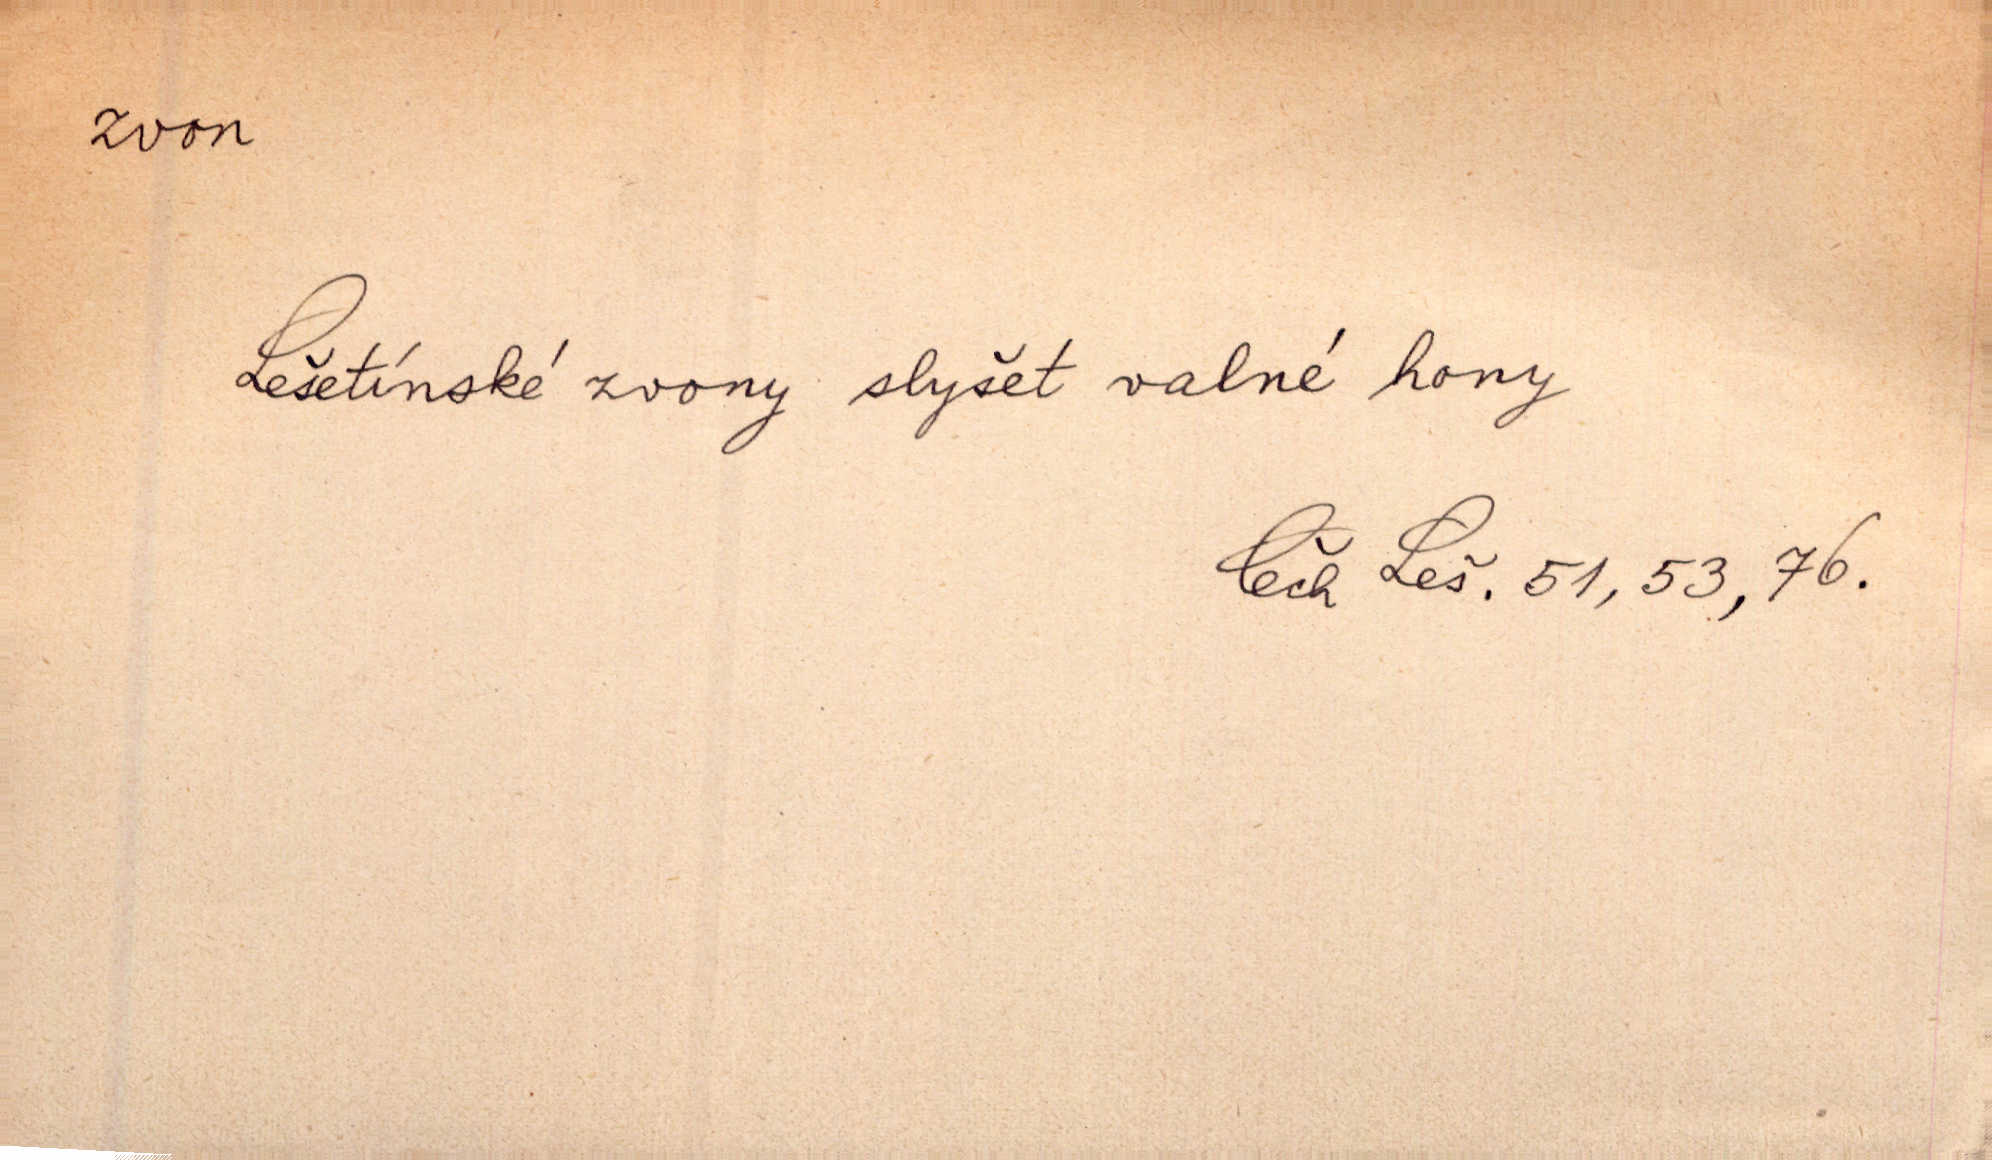 zvon
Lešetínské zvony slyšet valné hony
Čech Leš. 51, 53, 76.